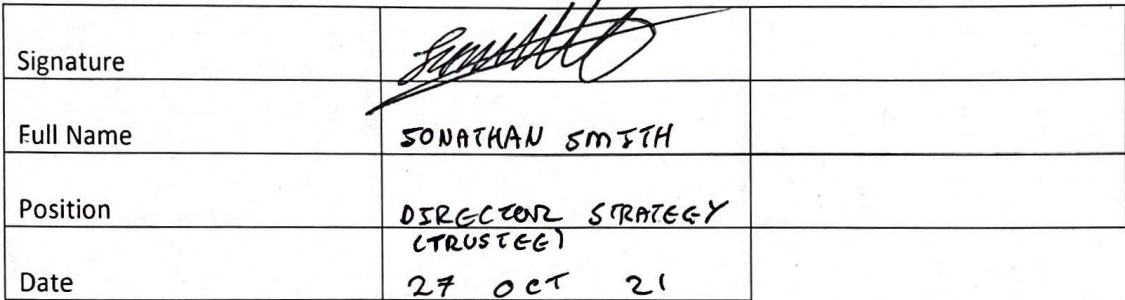 Signature
Full Name JONATHAN SMITH
Position DIRECTOR STRATEGY
(TRUSTEE)
Date 27 OCT 21